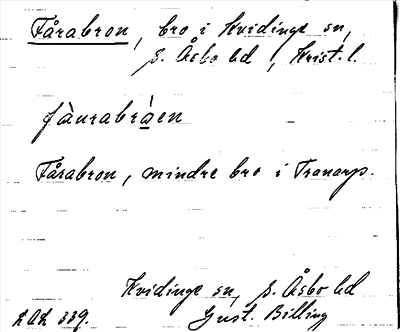 Fårabron, bro i Kvidinge sn,
S. Åsbo hd, Krist. l.
fàurabrá̱en
Fårabron, mindre bro i Tranarp.
Kvidinge sn, S. Åsbo hd
Gust. Billing
339.